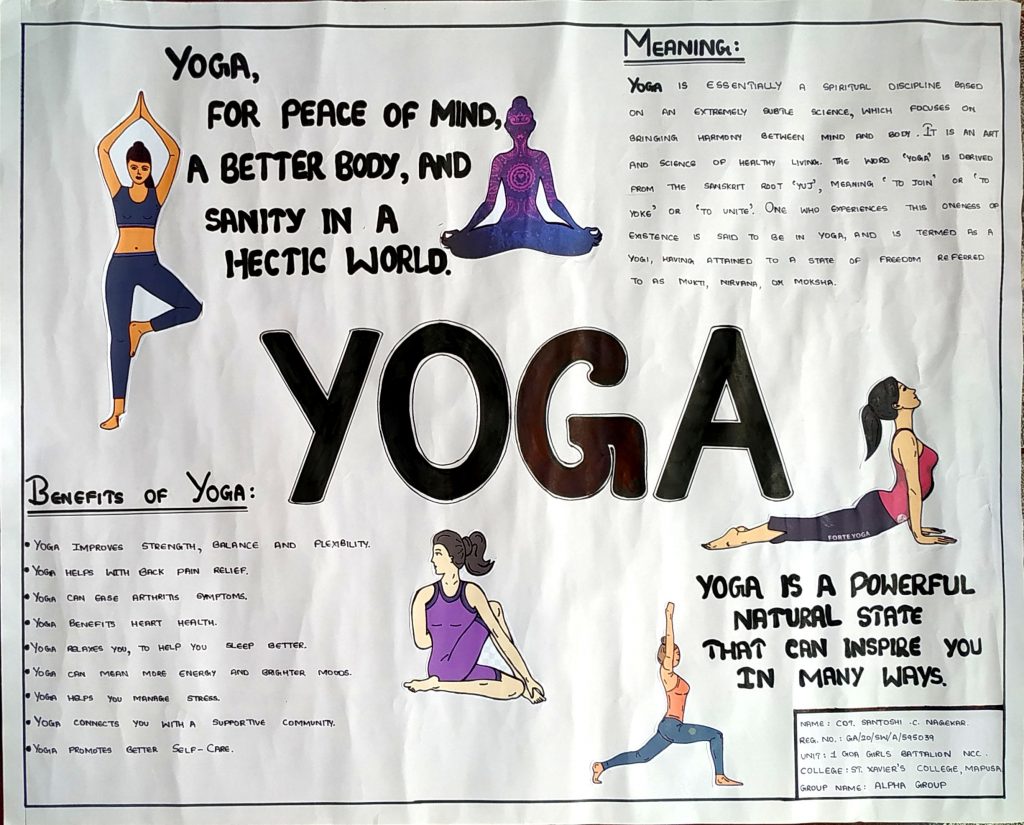 YOGA,
FOR PEACE OF MIND,
A BETTER BODY, AND
SANITY IN A
HECTIC WORLD.
MEANING:
YOGA IS ESSENTIALLY A SPIRITUAL DISCIPLINE BASED
ON AN EXTREMELY SUBTLE SCIENCE, WHICH FOCUSES ON
BRINGING HARMONY BETWEEN MIND AND BODY. IT IS AN ART
AND SCIENCE OF HEALTHY LIVING. THE WORD 'YOGA' IS DERIVED
FROM THE SANSKRIT ROOT 'YUJ', MEANING 'TO JOIN' OR 'TO
YOKE' OR 'TO UNITE'. ONE WHO EXPERIENCES THIS ONENESS OF
EXISTENCE IS SAID TO BE IN YOGA, AND IS TERMED AS A
YOGI, HAVING ATTAINED TO A STATE OF FREEDOM REFERRED
TO AS MUKTI, NIRVANA, OR MOKSHA.
YOGA
BENEFITS OF YOGA:
• YOGA IMPROVES STRENGTH, BALANCE AND FLEXIBILITY.
• YOGA HELPS WITH BACK PAIN RELIEF.
• YOGA CAN EASE ARTHRITIS SYMPTOMS.
• YOGA BENEFITS HEART HEALTH.
• YOGA RELAXES YOU, TO HELP YOU SLEEP BETTER.
• YOGA CAN MEAN MORE ENERGY AND BRIGHTER MOODS.
• YOGA HELPS YOU MANAGE STRESS.
• YOGA CONNECTS YOU WITH A SUPPORTIVE COMMUNITY.
• YOGA PROMOTES BETTER SELF-CARE.
FORTE YOGA
YOGA IS A POWERFUL
NATURAL STATE
THAT CAN INSPIRE YOU
IN MANY WAYS.
NAME: CDT. SANTOSHI .C. NAGEKAR.
REG. NO.: GA/20/SW/A/595039
UNIT: 1 GOA GIRLS BATTALION NCC.
COLLEGE: ST. XAVIER'S COLLEGE, MAPUSA
GROUP NAME: ALPHA GROUP